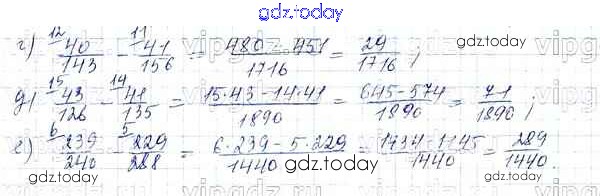 gdz.today
г) ¹²40/143 - ¹¹41/156 = 480 - 451/1716 = 29/1716;
д) ¹⁵43/126 - ¹⁴41/135 = 15·43-14·41/1890 = 645-574/1890 = 71/1890;
е) ⁶239/240 - ⁵229/288 = 6·239-5·229/1440 = 1434-1145/1440 = 289/1440.
gdz.today